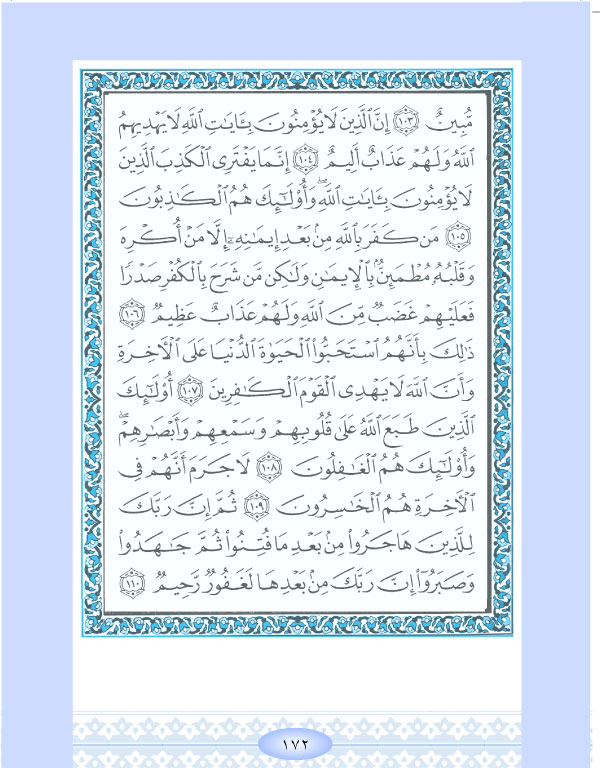 مُّبِينٌ ﴿١٠٣﴾ إِنَّ ٱلَّذِينَ لَا يُؤْمِنُونَ بِـَٔايَٰتِ ٱللَّهِ لَا يَهْدِيهِمُ
ٱللَّهُ وَلَهُمْ عَذَابٌ أَلِيمٌ ﴿١٠٤﴾ إِنَّمَا يَفْتَرِى ٱلْكَذِبَ ٱلَّذِينَ
لَا يُؤْمِنُونَ بِـَٔايَٰتِ ٱللَّهِ ۖ وَأُو۟لَٰٓئِكَ هُمُ ٱلْكَٰذِبُونَ
﴿١٠٥﴾ مَن كَفَرَ بِٱللَّهِ مِنۢ بَعْدِ إِيمَٰنِهِۦٓ إِلَّا مَنْ أُكْرِهَ
وَقَلْبُهُۥ مُطْمَئِنٌّۢ بِٱلْإِيمَٰنِ وَلَٰكِن مَّن شَرَحَ بِٱلْكُفْرِ صَدْرًا
فَعَلَيْهِمْ غَضَبٌ مِّنَ ٱللَّهِ وَلَهُمْ عَذَابٌ عَظِيمٌ ﴿١٠٦﴾
ذَٰلِكَ بِأَنَّهُمُ ٱسْتَحَبُّوا۟ ٱلْحَيَوٰةَ ٱلدُّنْيَا عَلَى ٱلْءَاخِرَةِ
وَأَنَّ ٱللَّهَ لَا يَهْدِى ٱلْقَوْمَ ٱلْكَٰفِرِينَ ﴿١٠٧﴾ أُو۟لَٰٓئِكَ
ٱلَّذِينَ طَبَعَ ٱللَّهُ عَلَىٰ قُلُوبِهِمْ وَسَمْعِهِمْ وَأَبْصَٰرِهِمْ ۖ
وَأُو۟لَٰٓئِكَ هُمُ ٱلْغَٰفِلُونَ ﴿١٠٨﴾ لَا جَرَمَ أَنَّهُمْ فِى
ٱلْءَاخِرَةِ هُمُ ٱلْخَٰسِرُونَ ﴿١٠٩﴾ ثُمَّ إِنَّ رَبَّكَ
لِلَّذِينَ هَاجَرُوا۟ مِنۢ بَعْدِ مَا فُتِنُوا۟ ثُمَّ جَٰهَدُوا۟
وَصَبَرُوٓا۟ إِنَّ رَبَّكَ مِنۢ بَعْدِهَا لَغَفُورٌ رَّحِيمٌ ﴿١١٠﴾
١٧٢